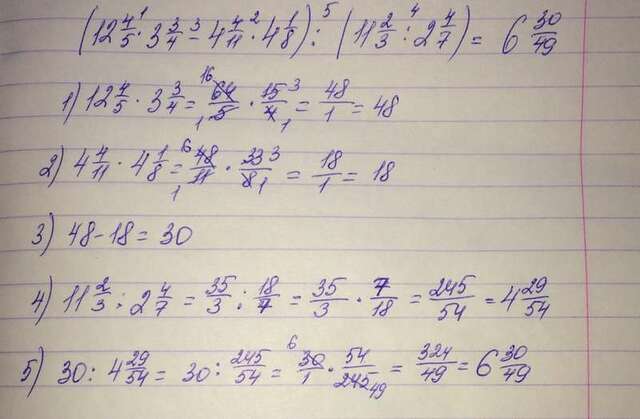 (12 4/5 ·¹ 3 3/4 -³ 4 4/11 ·² 4 1/8) :⁵ (11 2/3 :⁴ 2 4/7) = 6 30/49
1) 12 4/5 · 3 3/4 = 16 64/5 1 · 15/4 3 1 = 48/1 = 48
2) 4 4/11 · 4 1/8 = 6 48/11 1 · 33/8 3 1 = 18/1 = 18
3) 48 - 18 = 30
4) 11 2/3 : 2 4/7 = 35/3 : 18/7 = 35/3 · 7/18 = 245/54 = 4 29/54
5) 30 : 4 29/54 = 30 : 245/54 = 6 30/1 · 54/245 49 = 324/49 = 6 30/49